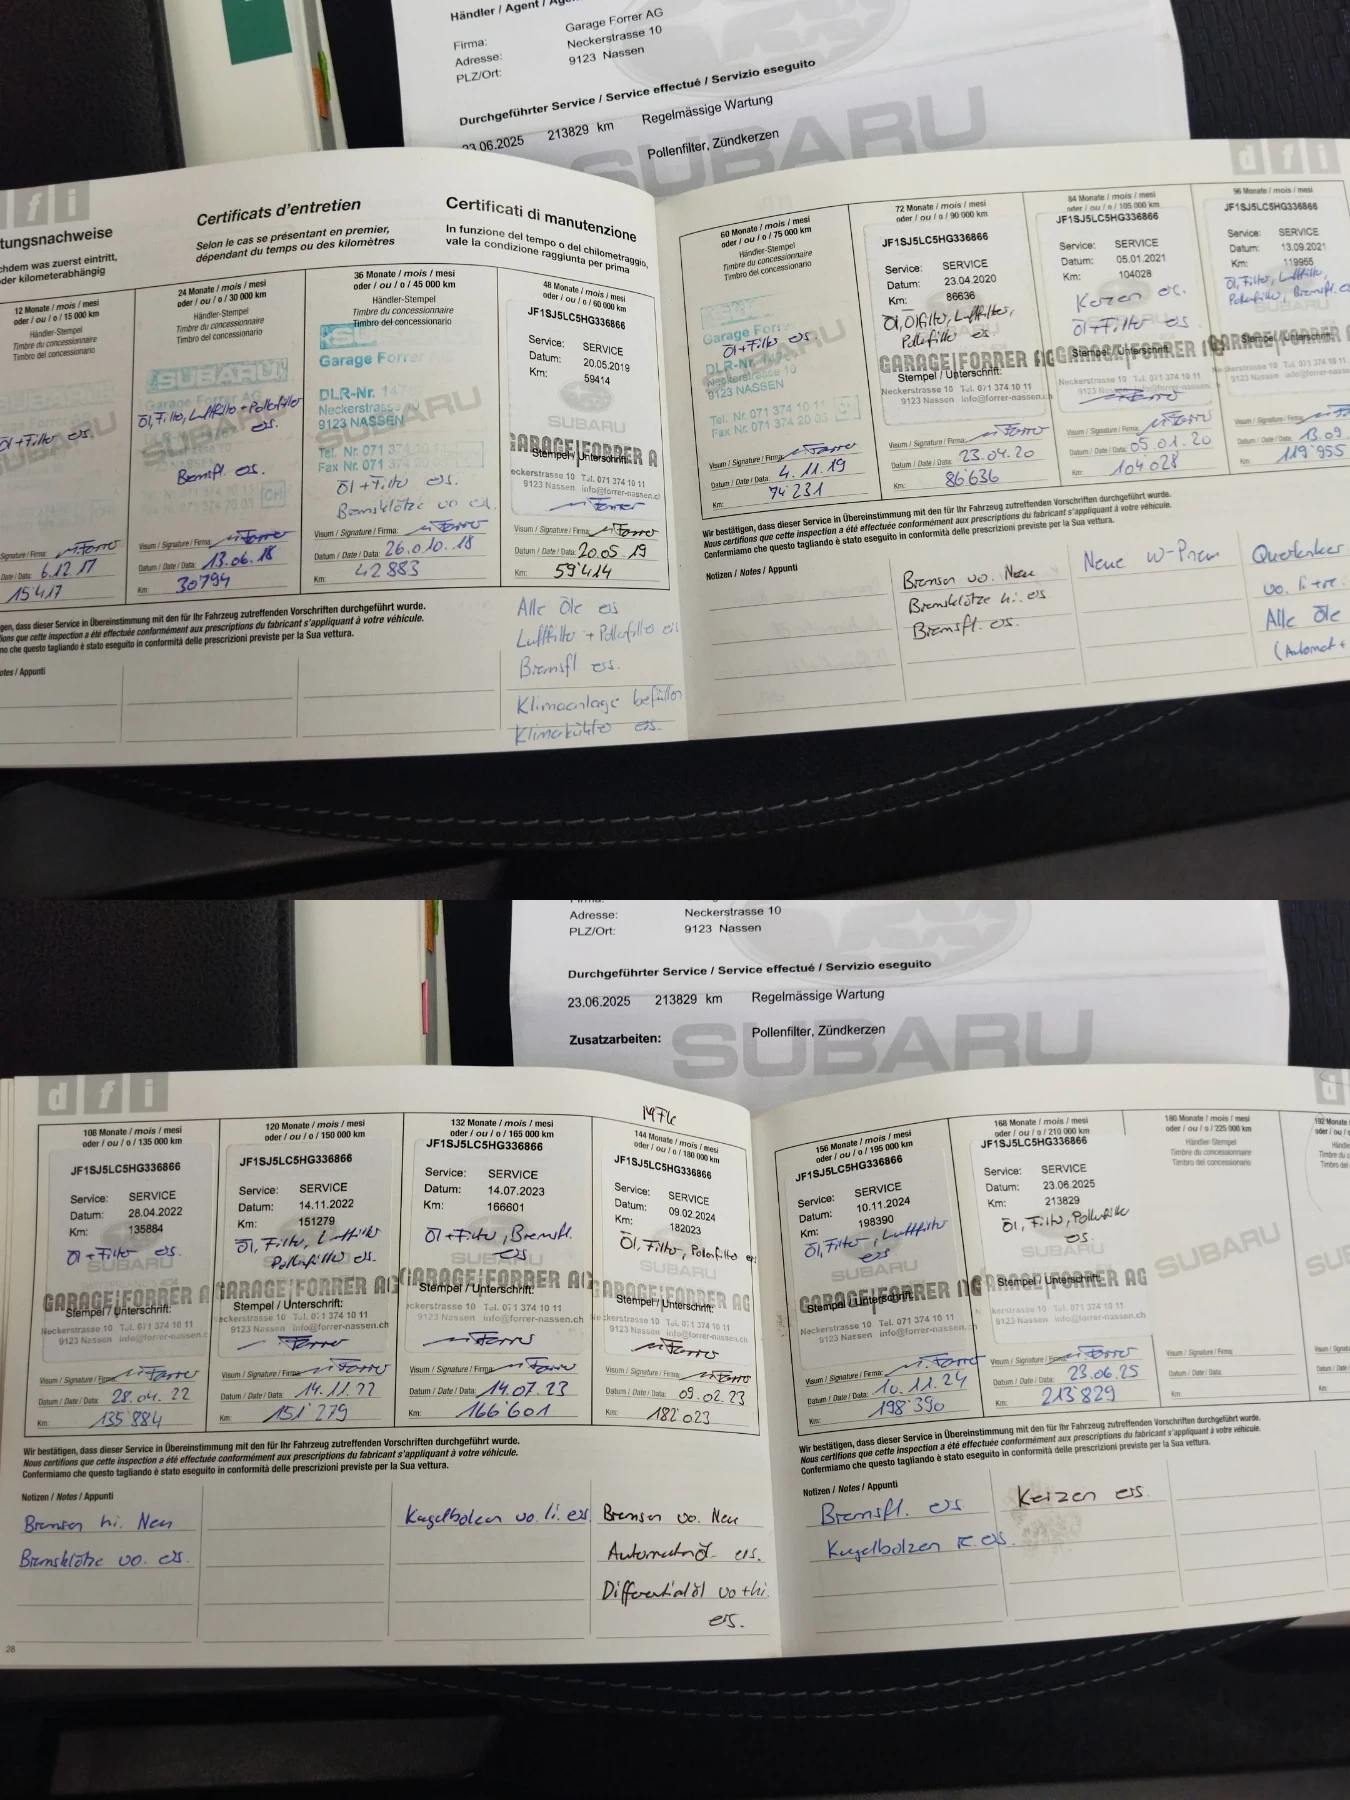 Händler / Agent /
Firma: Garage Forrer AG
Adresse: Neckerstrasse 10
PLZ/Ort: 9123 Nassen
Durchgeführter Service / Service effectué / Servizio eseguito
23.06.2025 213829 km Regelmässige Wartung
Pollenfilter, Zündkerzen
SUBARU
dfi
tungsnachweise
chdem was zuerst eintritt,
oder kilometerabhängig
Certificats d'entretien
Selon le cas se présentant en premier,
dépendant du temps ou des kilomètres
Certificati di manutenzione
In funzione del tempo o del chilometraggio,
vale la condizione raggiunta per prima
12 Monate / mois / mesi
oder / ou / o / 15 000 km
Händler-Stempel
Timbre du concessionnaire
Timbro del concessionario
Öl + Filter ers.
Signature / Firma:
Date / Data: 6.12.17
15'417
24 Monate / mois / mesi
oder / ou / o / 30 000 km
Händler-Stempel
Timbre du concessionnaire
Timbro del concessionario
SUBARU
Garage Forrer AG
Öl, Filter, Luftfilter + Pollenfilter
ers.
Bremsfl. ers.
Visum / Signature / Firma:
Datum / Date / Data: 13.06.18
Km: 30'794
36 Monate / mois / mesi
oder / ou / o / 45 000 km
Händler-Stempel
Timbre du concessionnaire
Timbro del concessionario
Garage Forrer
DLR-Nr.
Neckerstrasse
9123 NASSEN
Tel. Nr. 071 374
Fax Nr. 071
Öl + Filter ers.
Bremsklötze vo ers.
Visum / Signature / Firma:
Datum / Date / Data: 26.010.18
Km: 42'883
48 Monate / mois / mesi
oder / ou / o / 60 000 km
JF1SJ5LC5HG336866
Service: SERVICE
Datum: 20.05.2019
Km: 59414
SUBARU
GARAGE FORRER A
Stempel / Unterschrift:
eckerstrasse 10 Tel. 071 374 10 11
9123 Nassen info@forrer-nassen.ch
Visum / Signature / Firma:
Datum / Date / Data: 20.05.19
Km: 59'414
gen, dass dieser Service in Übereinstimmung mit den für Ihr Fahrzeug zutreffenden Vorschriften durchgeführt wurde.
ifions que cette inspection a été effectuée conformément aux prescriptions du fabricant s'appliquant à votre véhicule.
mo che questo tagliando è stato eseguito in conformità delle prescrizioni previste per la Sua vettura.
otes / Appunti
Alle Öle ers
Luftfilter + Pollenfilter ers
Bremsfl ers.
Klimaanlage befüllen
Klimakühler ers.
dfi
60 Monate / mois / mesi
oder / ou / o / 75 000 km
Händler-Stempel
Timbre du concessionnaire
Timbro del concessionario
Garage Forrer
Öl + Filter ers.
DLR-Nr.
Neckerstrasse 10
9123 NASSEN
Tel. Nr. 071 374 10 11
Fax Nr. 071 374 20 03
Visum / Signature / Firma:
Datum / Date / Data: 4.11.19
Km: 74'231
72 Monate / mois / mesi
oder / ou / o / 90 000 km
JF1SJ5LC5HG336866
Service: SERVICE
Datum: 23.04.2020
Km: 86636
Öl, Ölfilter, Luftfilter,
Pollenfilter ers
GARAGE FORRER AG
Stempel / Unterschrift:
Neckerstrasse 10 Tel. 071 374 10 11
9123 Nassen info@forrer-nassen.ch
Visum / Signature / Firma:
Datum / Date / Data: 23.04.20
Km: 86'636
84 Monate / mois / mesi
oder / ou / o / 105 000 km
JF1SJ5LC5HG336866
Service: SERVICE
Datum: 05.01.2021
Km: 104028
Kerzen ers.
Öl + Filter ers
GARAGE FORRER AG
Stempel / Unterschrift:
Neckerstrasse 10 Tel. 071 374 10 11
9123 Nassen info@forrer-nassen
Visum / Signature / Firma:
Datum / Date / Data: 05.01.20
Km: 104'028
96 Monate / mois / mesi
oder / ou / o / 120 000 km
JF1SJ5LC5HG336866
Service: SERVICE
Datum: 13.09.2021
Km: 119955
Öl, Filter, Luftfilter,
Pollenfilter, Bremsfl. ers
GARAGE FORRER A
Stempel / Unterschrift:
Visum / Signature / Firma:
Datum / Date / Data: 13.09.
Km: 119'955
Wir bestätigen, dass dieser Service in Übereinstimmung mit den für Ihr Fahrzeug zutreffenden Vorschriften durchgeführt wurde.
Nous certifions que cette inspection a été effectuée conformément aux prescriptions du fabricant s'appliquant à votre véhicule.
Confermiamo che questo tagliando è stato eseguito in conformità delle prescrizioni previste per la Sua vettura.
Notizen / Notes / Appunti
Bremsen vo. Neu
Bremsklötze hi. ers
Bremsfl. ers.
Neue W-Pneu
Querlenker
vo. li + re.
Alle Öle
(Automat +
Adresse: Neckerstrasse 10
PLZ/Ort: 9123 Nassen
Durchgeführter Service / Service effectué / Servizio eseguito
23.06.2025 213829 km Regelmässige Wartung
Zusatzarbeiten: Pollenfilter, Zündkerzen
SUBARU
dfi
108 Monate / mois / mesi
oder / ou / o / 135 000 km
JF1SJ5LC5HG336866
Service: SERVICE
Datum: 28.04.2022
Km: 135884
Öl + Filter ers.
GARAGE FORRER A
Stempel / Unterschrift:
Neckerstrasse 10 Tel. 071 374 10 11
9123 Nassen info@forrer-nassen.c
Visum / Signature / Firma:
Datum / Date / Data: 28.04.22
Km: 135'884
120 Monate / mois / mesi
oder / ou / o / 150 000 km
JF1SJ5LC5HG336866
Service: SERVICE
Datum: 14.11.2022
Km: 151279
Öl, Filter, Luftfilter
Pollenfilter ers.
GARAGE FORRER AG
Stempel / Unterschrift:
Neckerstrasse 10 Tel. 071 374 10 11
9123 Nassen info@forrer-nassen.ch
Visum / Signature / Firma:
Datum / Date / Data: 14.11.22
Km: 151'279
132 Monate / mois / mesi
oder / ou / o / 165 000 km
JF1SJ5LC5HG336866
Service: SERVICE
Datum: 14.07.2023
Km: 166601
Öl + Filter, Bremsfl.
ers
SUBARU
GARAGE FORRER AG
Stempel / Unterschrift:
eckerstrasse 10 Tel. 071 374 10 11
9123 Nassen info@forrer-nassen.ch
Visum / Signature / Firma:
Datum / Date / Data: 14.07.23
Km: 166'601
144 Monate / mois / mesi
oder / ou / o / 180 000 km
JF1SJ5LC5HG336866
Service: SERVICE
Datum: 09.02.2024
Km: 182023
Öl, Filter, Pollenfilter ers
SUBARU
GARAGE FORRER AG
Stempel / Unterschrift:
Neckerstrasse 10 Tel. 071 374 10 11
9123 Nassen info@forrer-nassen.ch
Visum / Signature / Firma:
Datum / Date / Data: 09.02.23
Km: 182'023
Wir bestätigen, dass dieser Service in Übereinstimmung mit den für Ihr Fahrzeug zutreffenden Vorschriften durchgeführt wurde.
Nous certifions que cette inspection a été effectuée conformément aux prescriptions du fabricant s'appliquant à votre véhicule.
Confermiamo che questo tagliando è stato eseguito in conformità delle prescrizioni previste per la Sua vettura.
Notizen / Notes / Appunti
Bremsen hi. Neu
Bremsklötze vo. ers.
Kugelbolzen vo. li. ers.
Bremsen vo. Neu
Automatenöl ers.
Differentialöl vo + hi.
ers.
28
156 Monate / mois / mesi
oder / ou / o / 195 000 km
JF1SJ5LC5HG336866
Service: SERVICE
Datum: 10.11.2024
Km: 198390
Öl, Filter, Luftfilter
ers
SUBARU
GARAGE FORRER AG
Stempel / Unterschrift:
Neckerstrasse 10 Tel. 071 374 10 11
9123 Nassen info@forrer-nassen.ch
Visum / Signature / Firma:
Datum / Date / Data: 10.11.24
Km: 198'390
168 Monate / mois / mesi
oder / ou / o / 210 000 km
JF1SJ5LC5HG336866
Service: SERVICE
Datum: 23.06.2025
Km: 213829
Öl, Filter, Pollenfilter
ers.
SUBARU
GARAGE FORRER AG
Stempel / Unterschrift:
Neckerstrasse 10 Tel. 071 374 10 11
9123 Nassen info@forrer-nassen.ch
Visum / Signature / Firma:
Datum / Date / Data: 23.06.25
Km: 213'829
180 Monate / mois / mesi
oder / ou / o / 225 000 km
Händler-Stempel
Timbre du concessionnaire
Timbro del concessionario
SUBARU
Visum / Signature / Firma:
Datum / Date / Data:
Km:
192 Monate
Wir bestätigen, dass dieser Service in Übereinstimmung mit den für Ihr Fahrzeug zutreffenden Vorschriften durchgeführt wurde.
Nous certifions que cette inspection a été effectuée conformément aux prescriptions du fabricant s'appliquant à votre véhicule.
Confermiamo che questo tagliando è stato eseguito in conformità delle prescrizioni previste per la Sua vettura.
Notizen / Notes / Appunti
Bremsfl. ers
Kugelbolzen re. ers.
Kerzen ers.